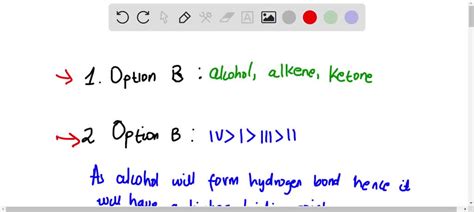 1. Option B : alcohol, alkene, ketone
2 Option B : IV>I>III>II
As alcohol will form hydrogen bond hence it
will have